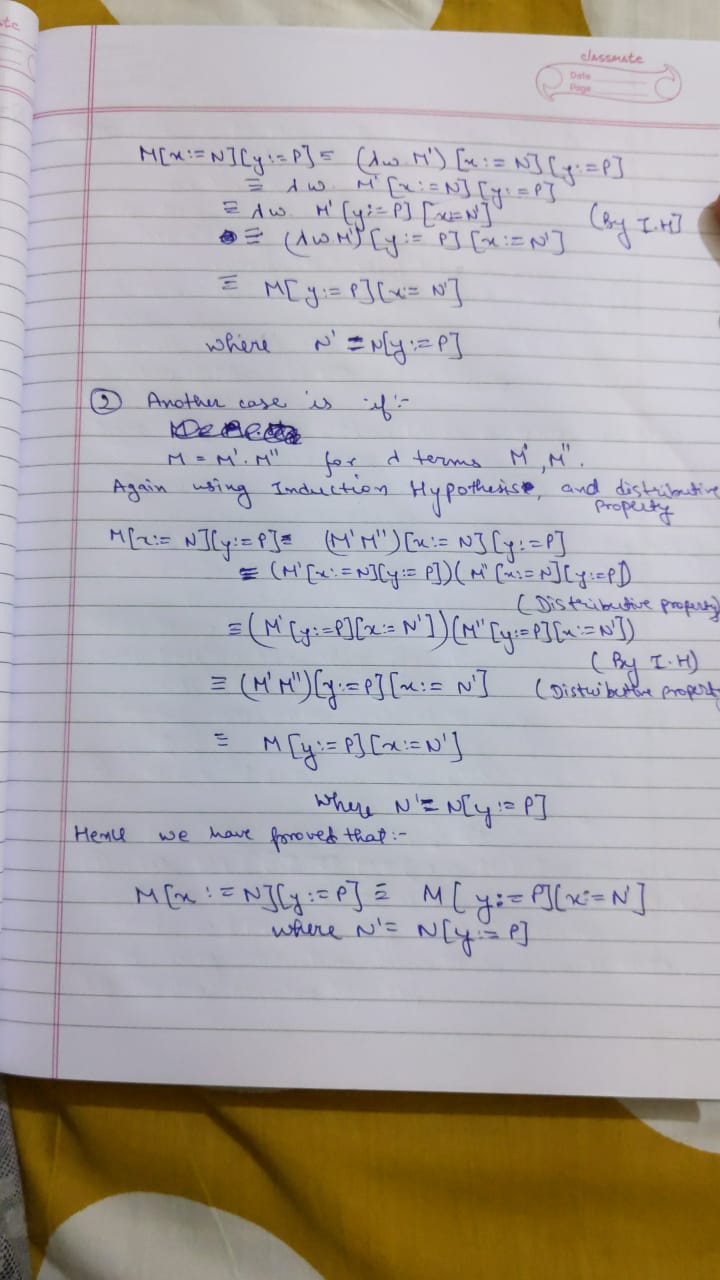 classmate
Date
Page
M[x:=N][y:=P] ≡ (λw M') [x:=N][y:=P]
≡ λw. M'[x:=N][y:=P]
≡ λw. M'[y:=P][x=N'] (By I.H]
≡ (λw.M')[y:=P][x:=N']
≡ M[y:=P][x:=N']
where N' ≡ N[y:=P]
② Another case is if:-
M = M'. M'' for λ terms M', M''.
Again using Induction Hypothesis, and distributive
property
M[x:=N][y:=P]≡ (M'M'')[x:=N][y:=P]
≡ (M'[x:=N][y:=P])(M'[x:=N][y:=P])
(Distributive property)
≡ (M'[y:=P][x:=N'])(M''[y:=P][x:=N'])
(By I.H)
≡ (M'M'')[y:=P][x:=N'] (Distributive propert
≡ M[y:=P][x:=N']
where N'≡ N[y:=P]
Hence we have proved that:-
M[x:=N][y:=P] ≡ M[y:=P][x:=N']
where N'= N[y:=P]